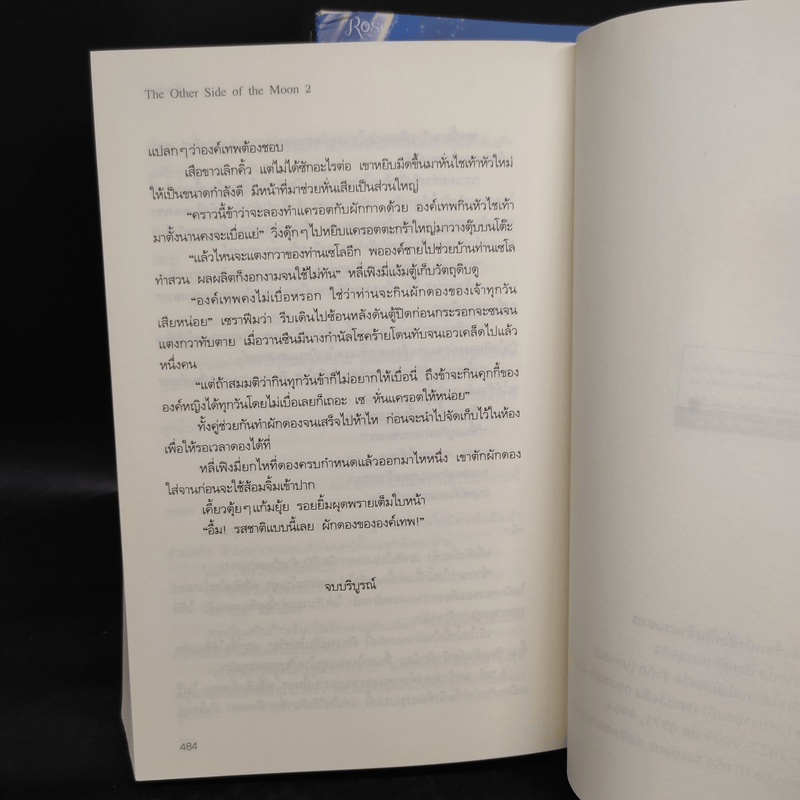 Rose
The Other Side of the Moon 2
แปลกๆว่าองค์เทพต้องชอบ
เสือขาวเลิกคิ้ว แต่ไม่ได้ซักอะไรต่อ เขาหยิบมีดขึ้นมาหั่นไชเท้าหัวใหม่
ให้เป็นขนาดกำลังดี มีหน้าที่มาช่วยหั่นเสียเป็นส่วนใหญ่
“คราวนี้ข้าว่าจะลองทำแครอตกับผักกาดด้วย องค์เทพกินหัวไชเท้า
มาตั้งนานคงจะเบื่อแย่” วิ่งตุ๊กๆไปหยิบแครอตตะกร้าใหญ่มาวางตุ๊บบนโต๊ะ
“แล้วไหนจะแตงกวาของท่านเซโลอีก พอองค์ชายไปช่วยบ้านท่านเซโล
ทำสวน ผลผลิตก็งอกงามจนใช้ไม่ทัน” หลี่เฟิงมี่แง้มตู้เก็บวัตถุดิบดู
“องค์เทพคงไม่เบื่อหรอก ใช่ว่าท่านจะกินผักดองของเจ้าทุกวัน
เสียหน่อย” เซราฟิมว่า รีบเดินไปซ้อนหลังดันตู้ปิดก่อนกระรอกจะซนจน
แตงกวาทับตาย เมื่อวานซืนมีนางกำนัลโชคร้ายโดนทับจนเอวเคล็ดไปแล้ว
หนึ่งคน
“แต่ถ้าสมมติว่ากินทุกวันข้าก็ไม่อยากให้เบื่อนี่ ถึงข้าจะกินคุกกี้ของ
องค์หญิงได้ทุกวันโดยไม่เบื่อเลยก็เถอะ เซ หั่นแครอตให้หน่อย”
ทั้งคู่ช่วยกันทำผักดองจนเสร็จไปห้าไห ก่อนจะนำไปจัดเก็บไว้ในห้อง
เพื่อให้รอเวลาดองได้ที่
หลี่เฟิงมี่ยกไหที่ดองครบกำหนดแล้วออกมาไหหนึ่ง เขาตักผักดอง
ใส่จานก่อนจะใช้ส้อมจิ้มเข้าปาก
เคี้ยวตุ้ยๆแก้มยุ้ย รอยยิ้มผุดพรายเต็มใบหน้า
“อื้ม! รสชาติแบบนี้เลย ผักดองขององค์เทพ!”
จบบริบูรณ์
484